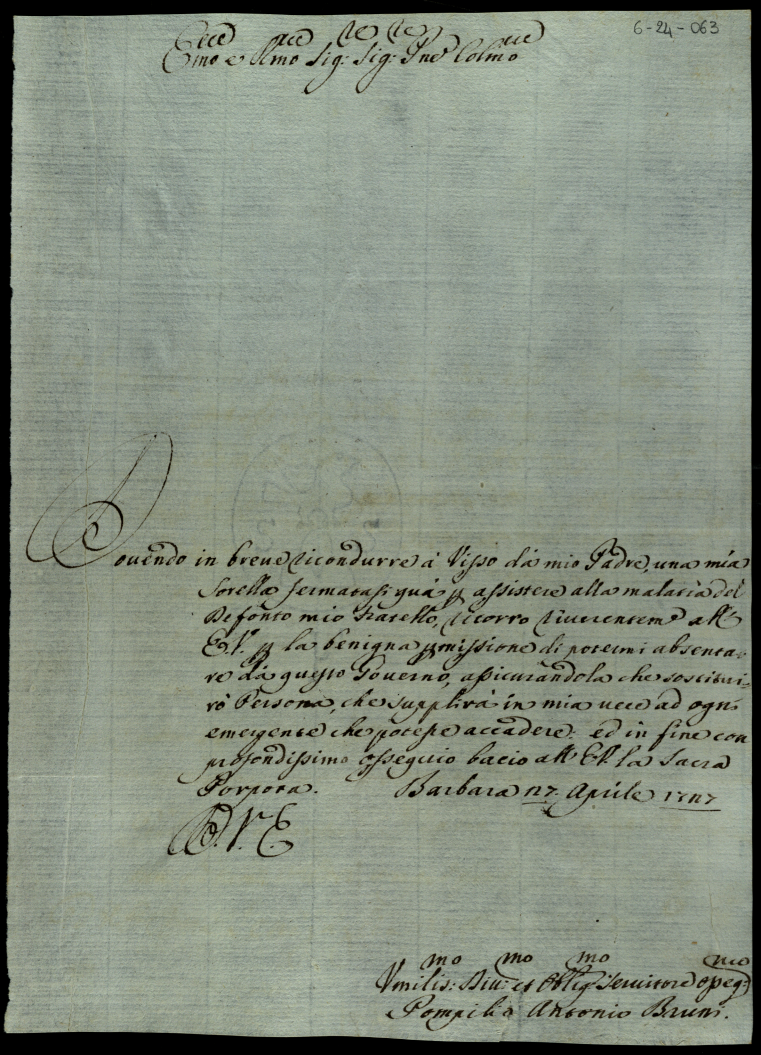 6-24-063
Emo e Rmo Sig: Sig: Pne Colmo
Dovendo in breve ricondurre à Visso dà mio Padre, una mia
Sorella fermatasi quà p assistere alla malatia del
Defonto mio Fratello, ricorro riverentemte all'
E.V. p la benigna pmissione di potermi absenta=
re dà questo Governo, assicurandola che sostitui=
rò Persona, che supplirà in mia vece ad ogni
emergente che potesse accadere: ed in fine con
profondissimo ossequio bacio all' E.V. la Sacra
Porpora. Barbara 27 Aprile 1727
D. V. E.
Vmilis:mo Div:mo et Oblig:mo Servitore Osseq:mo
Pompilio Antonio Bruni.